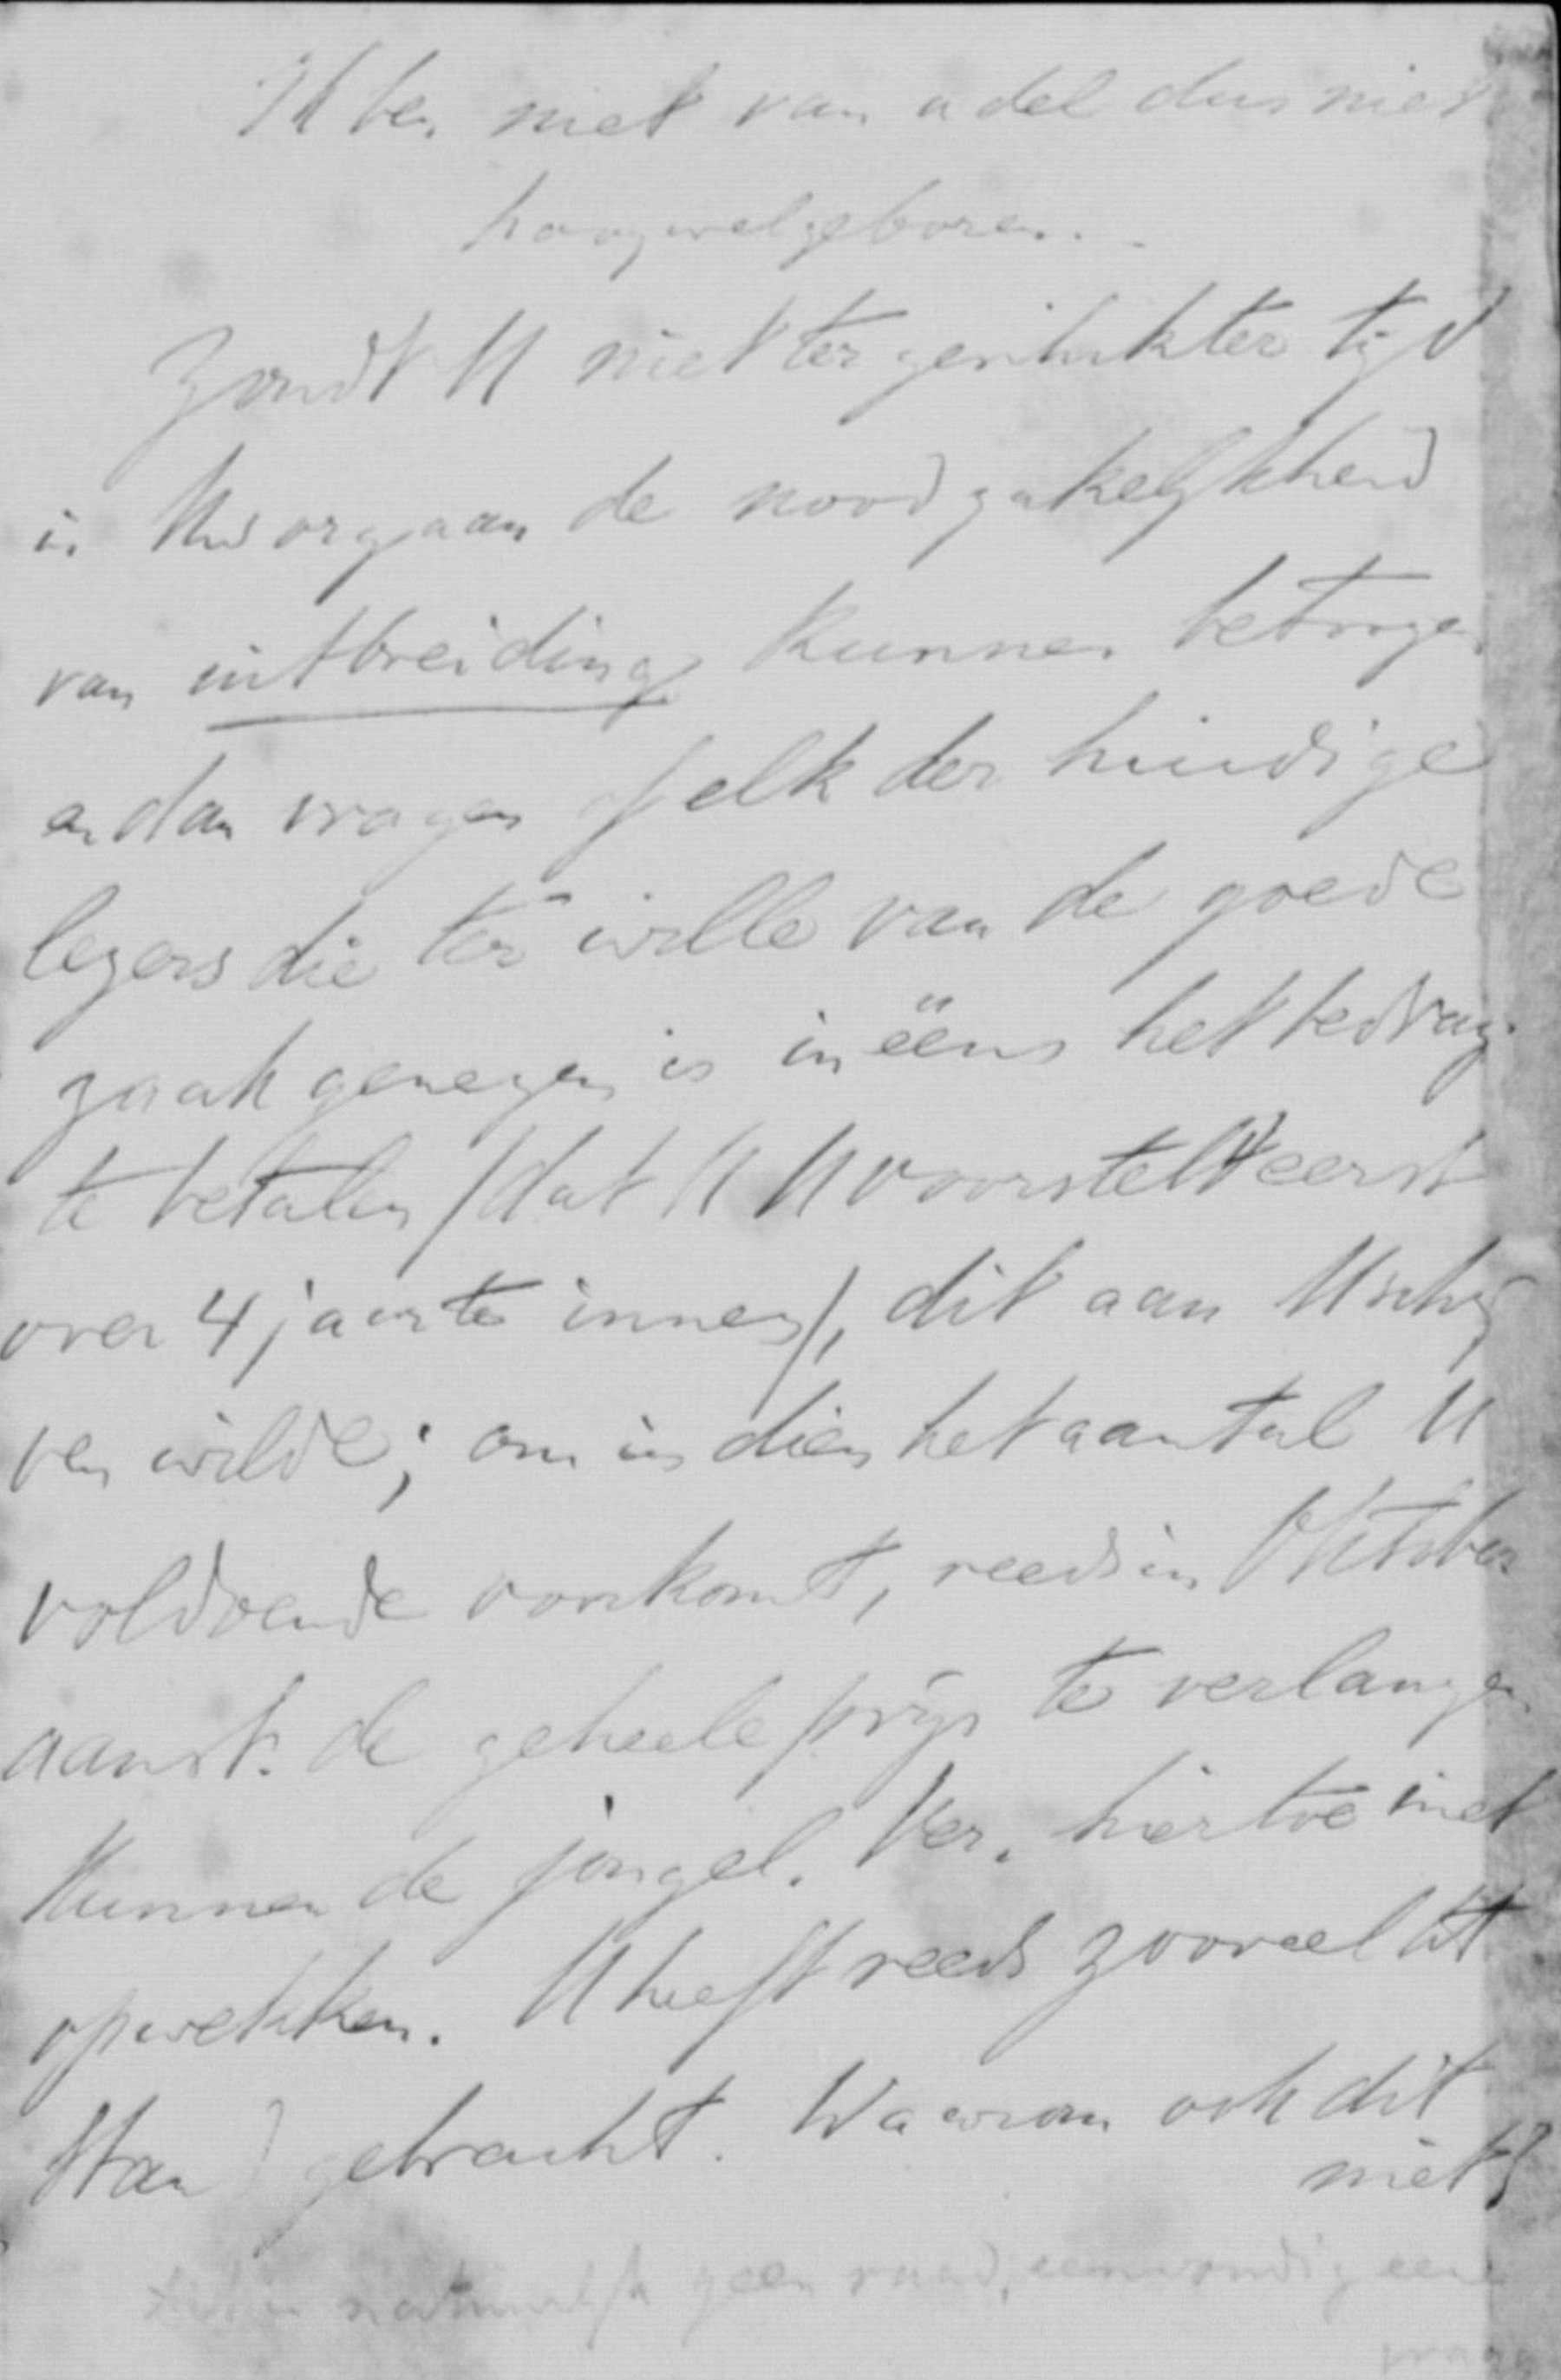 Ik ben niet van adel dus niet
hoogwelgeboren.
Zoudt U niet ter geschikter tijd
in Uw orgaan de noodzakelijkheid
van uitbreiding kunnen betoogen
en dan vragen of elk der huidige
lezers die ter wille van de goede
zaak genegen is in ééns het bedrag
te betalen /dat U U voorstelt eerst
over 4 jaar te innen/, dit aan U schrij
ven wilde; om indien het aantal U
voldoende voorkomt, reeds in Oktober
aanst. de geheele prijs te verlangen
Kunnen de jongel. Ver. hiertoe niet
opwekken. U heeft reeds zooveel tot
stand gebracht. Waarom ook dit
niet?
natuurlijk geen raad, eenvoudig een
vraag